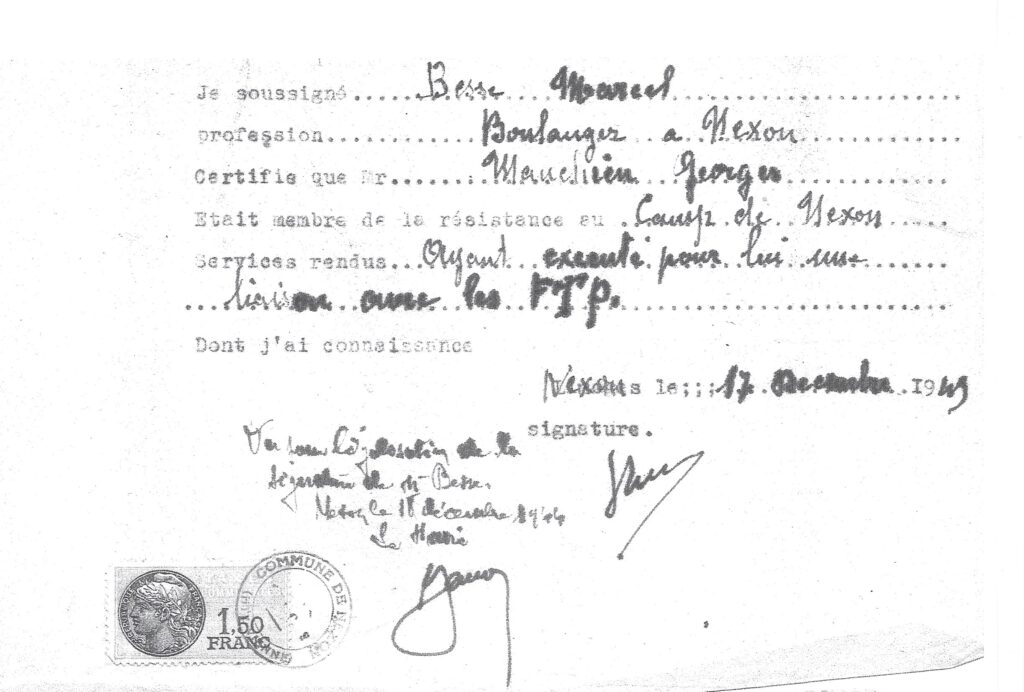 Je soussigné......Besse Marcel
profession.........Boulanger a Nexon
Certifie que Mr...... Georges
Etait membre de la résistance au .Camp de Nexon
Services rendus...Ayant executé pour lui une
liaison avec les FTP.
Dont j'ai connaissance
le;;;17 Decembre 19
signature.
Vu pour légalisation de la
signature de Mr Besse.
Nexon, le 18 décembre
Le Maire
COMMUNE DE NEXON
1,50
FRANC